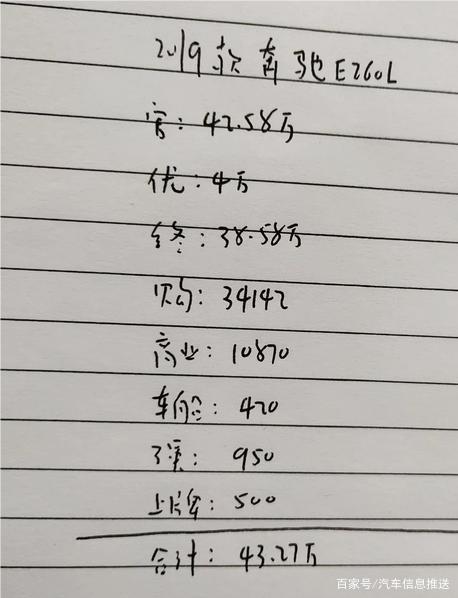 2019款奔驰E260L
官：42.58万
优：4万
终：38.58万
购：34142
商业：10870
车船：420
交强：950
上牌：500
合计：43.27万
百家号/汽车信息推送